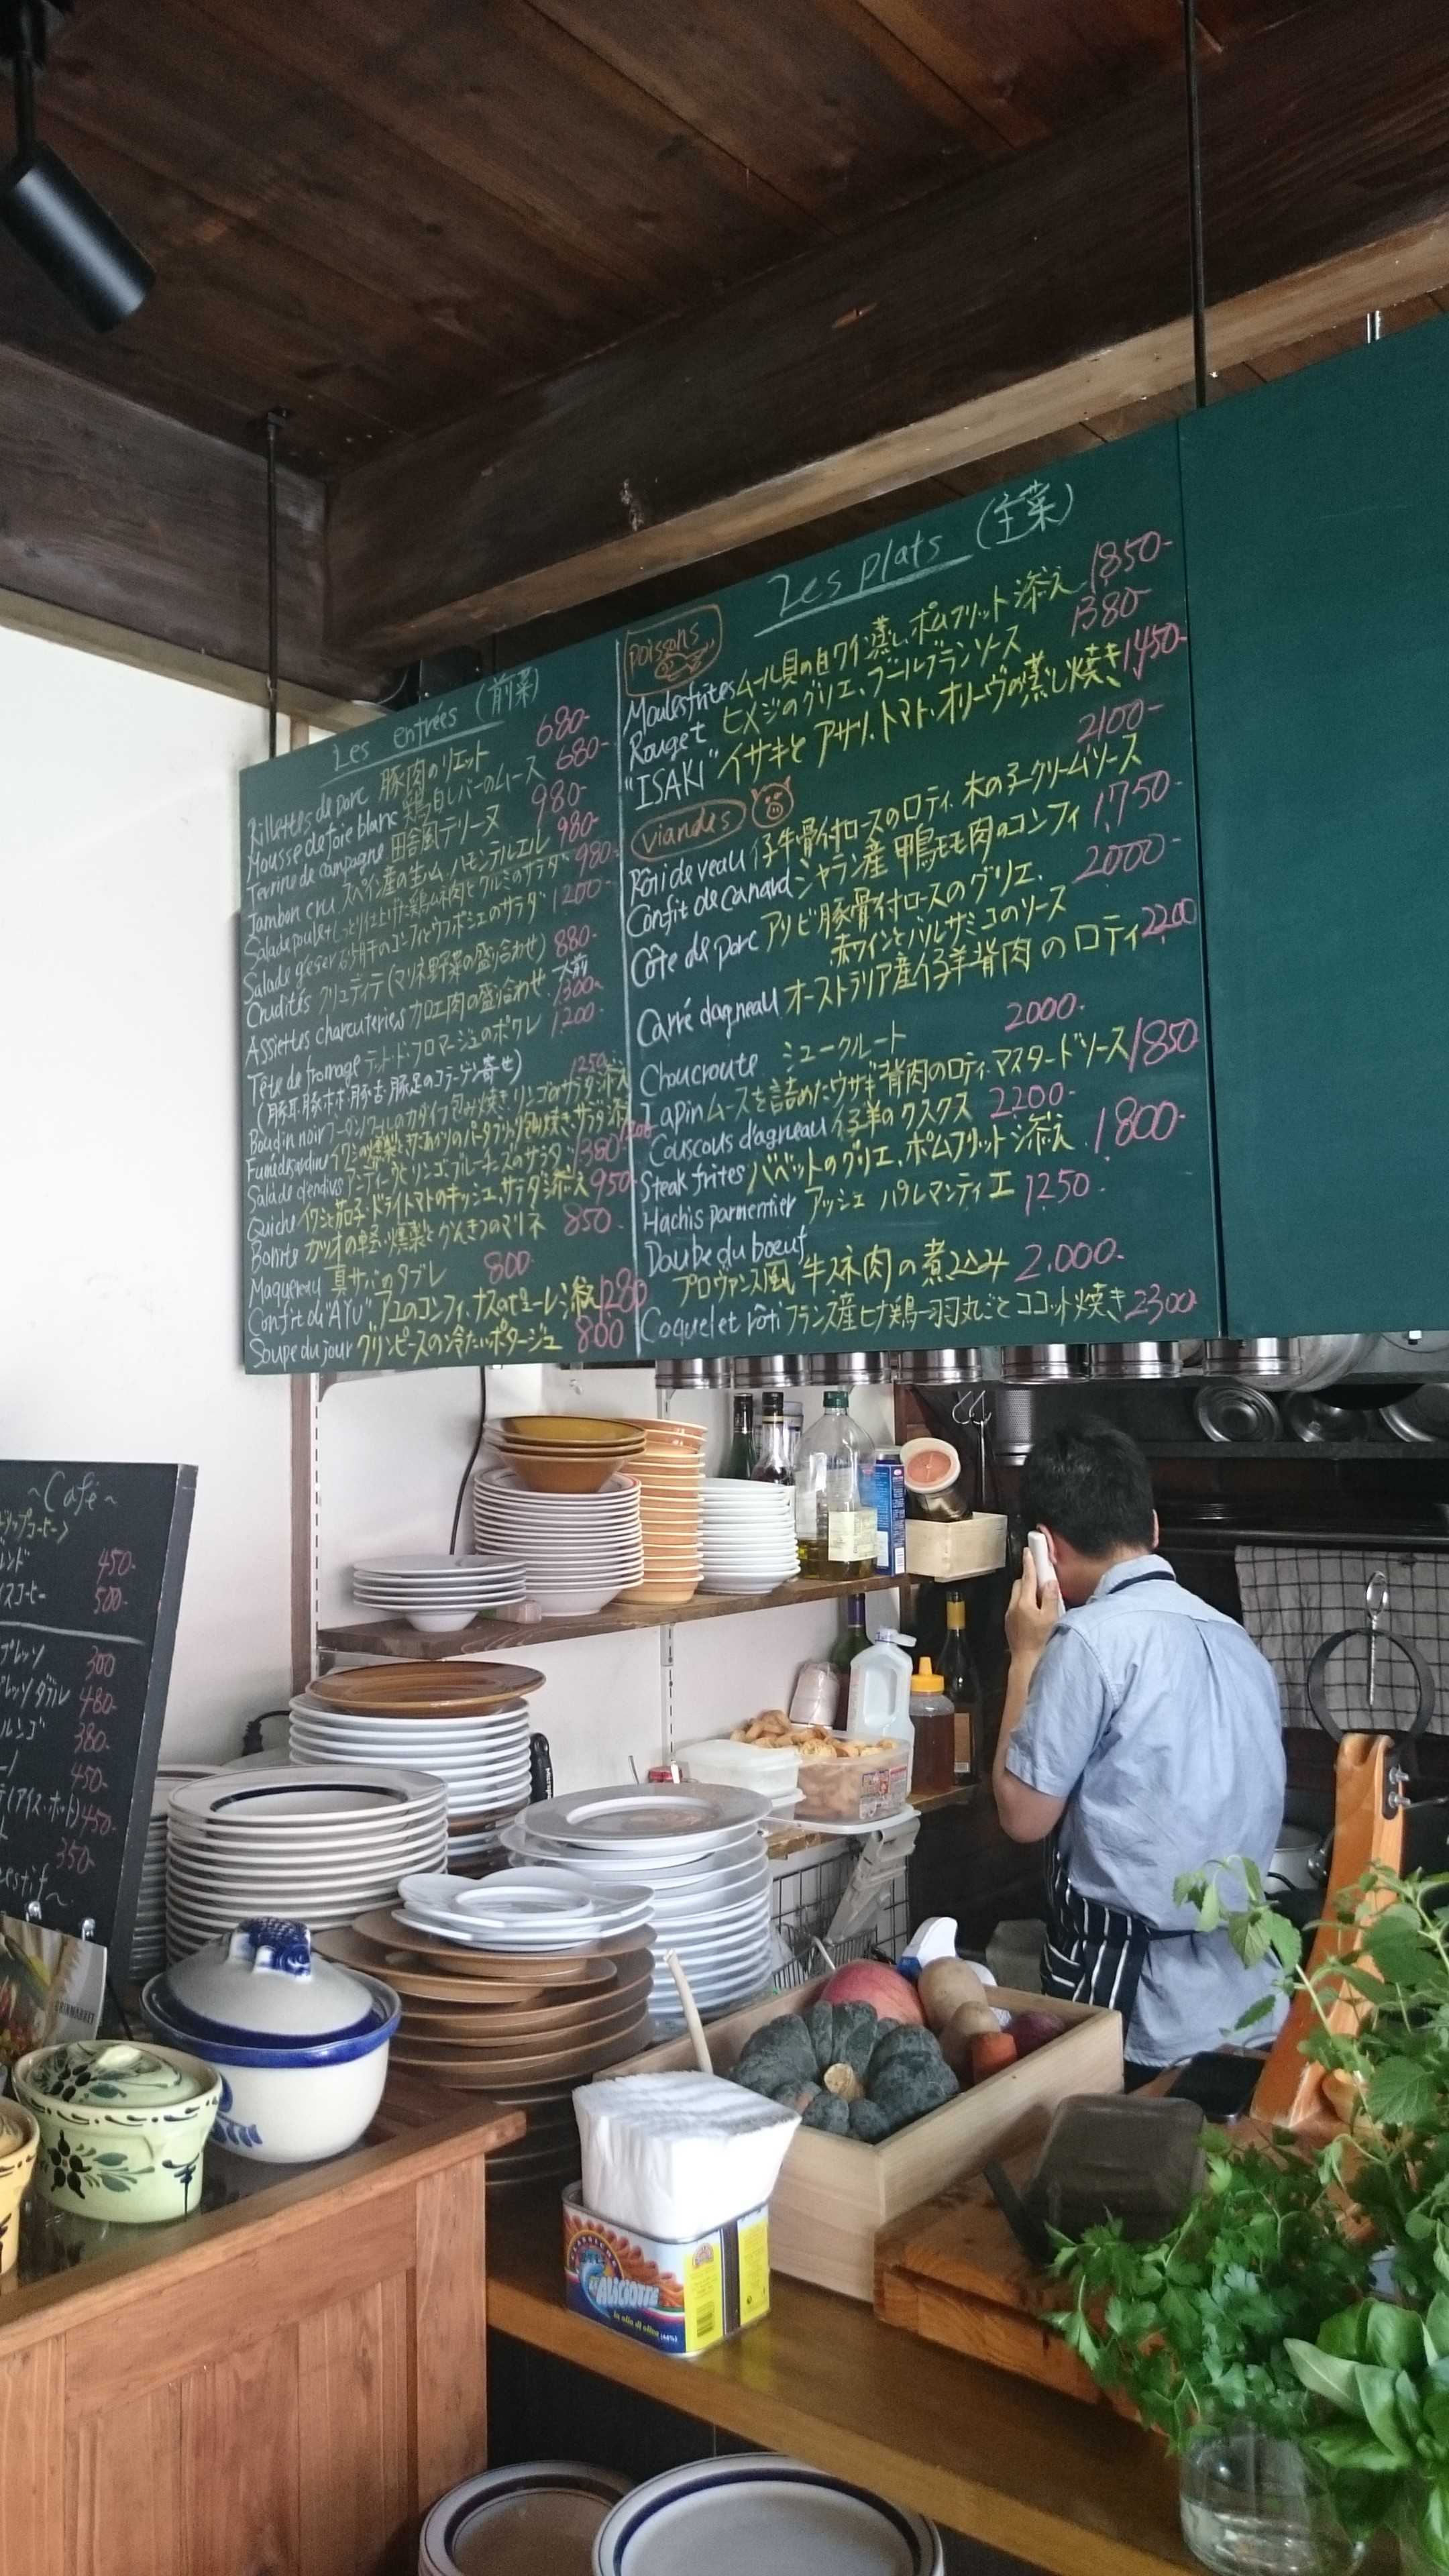 Les entrées (前菜)
Rillettes de porc 豚肉のリエット 680-
Mousse de foie blanc 鶏白レバーのムース 680-
Terrine de campagne 田舎風テリーヌ 980-
Jambon cru スペイン産の生ハム、ハモンテルエル 980-
Salade poulet しっとり仕上げた鶏ムネ肉とクルミのサラダ 980-
Salade gésier 砂肝のコンフィとウフポシェのサラダ 1200-
Crudités クリュディテ (マリネ野菜の盛り合わせ) 880-
Assiettes charcuteries 加工肉の盛り合わせ 1300-
Tête de fromage テット・ド・フロマージュのポワレ 1200-
(豚耳・豚ホホ・豚舌・豚足のコラーゲン寄せ)
Boudin noir カダイフ包み焼き、リンゴのサラダ添え 1250-
サラダ添え
Salade d'endives アンディーヴとリンゴ、ブルーチーズのサラダ 1380
Quiche イワシと茄子・ドライトマトのキッシュ、サラダ添え 950-
Bonite カツオの軽い燻製といんきつのマリネ 850-
Maquereau 真サバのタブレ 800-
Confit du "AYU" アユのコンフィ、ナスのピューレ添え 1280
Soupe du jour グリンピースの冷たいポタージュ 800
Les plats (主菜)
poissons
Moules frites ムール貝の白ワイン蒸し、ポムフリット添え 1850-
Rouget ヒメジのグリエ、ブールブランソース 1380-
"ISAKI" イサキとアサリ、トマト、オリーヴの蒸し焼き 1450-
viandes
Rôti de veau 仔牛骨付ロースのロティ、木の子クリームソース 2100-
Confit de canard シャラン産 鴨モモ肉のコンフィ 1,750-
Côte de porc アリビ豚骨付ロースのグリエ、 2000-
赤ワインとバルサミコのソース
Carré d'agneau オーストラリア産仔羊背肉のロティ 2200
Choucroute シュークルート 2000-
Lapin ムースを詰めたウサギ背肉のロティ、マスタードソース 1850
Couscous d'agneau 仔羊のクスクス 2200-
Steak frites バベットのグリエ、ポムフリット添え 1800-
Hachis parmentier アッシェ パルマンティエ 1250-
Daube du boeuf
プロヴァンス風 牛スネ肉の煮込み 2,000-
Coquelet rôti フランス産ヒナ鶏一羽丸ごとココット焼き 2300-
~Café~
450-
スコーヒー 500-
プレッソ 300
プレッソ ダブル 480-
ルンゴ 380-
450-
(アイス・ホット) 450-
350-
estif~
ALICIOTTE
in olio di oliva